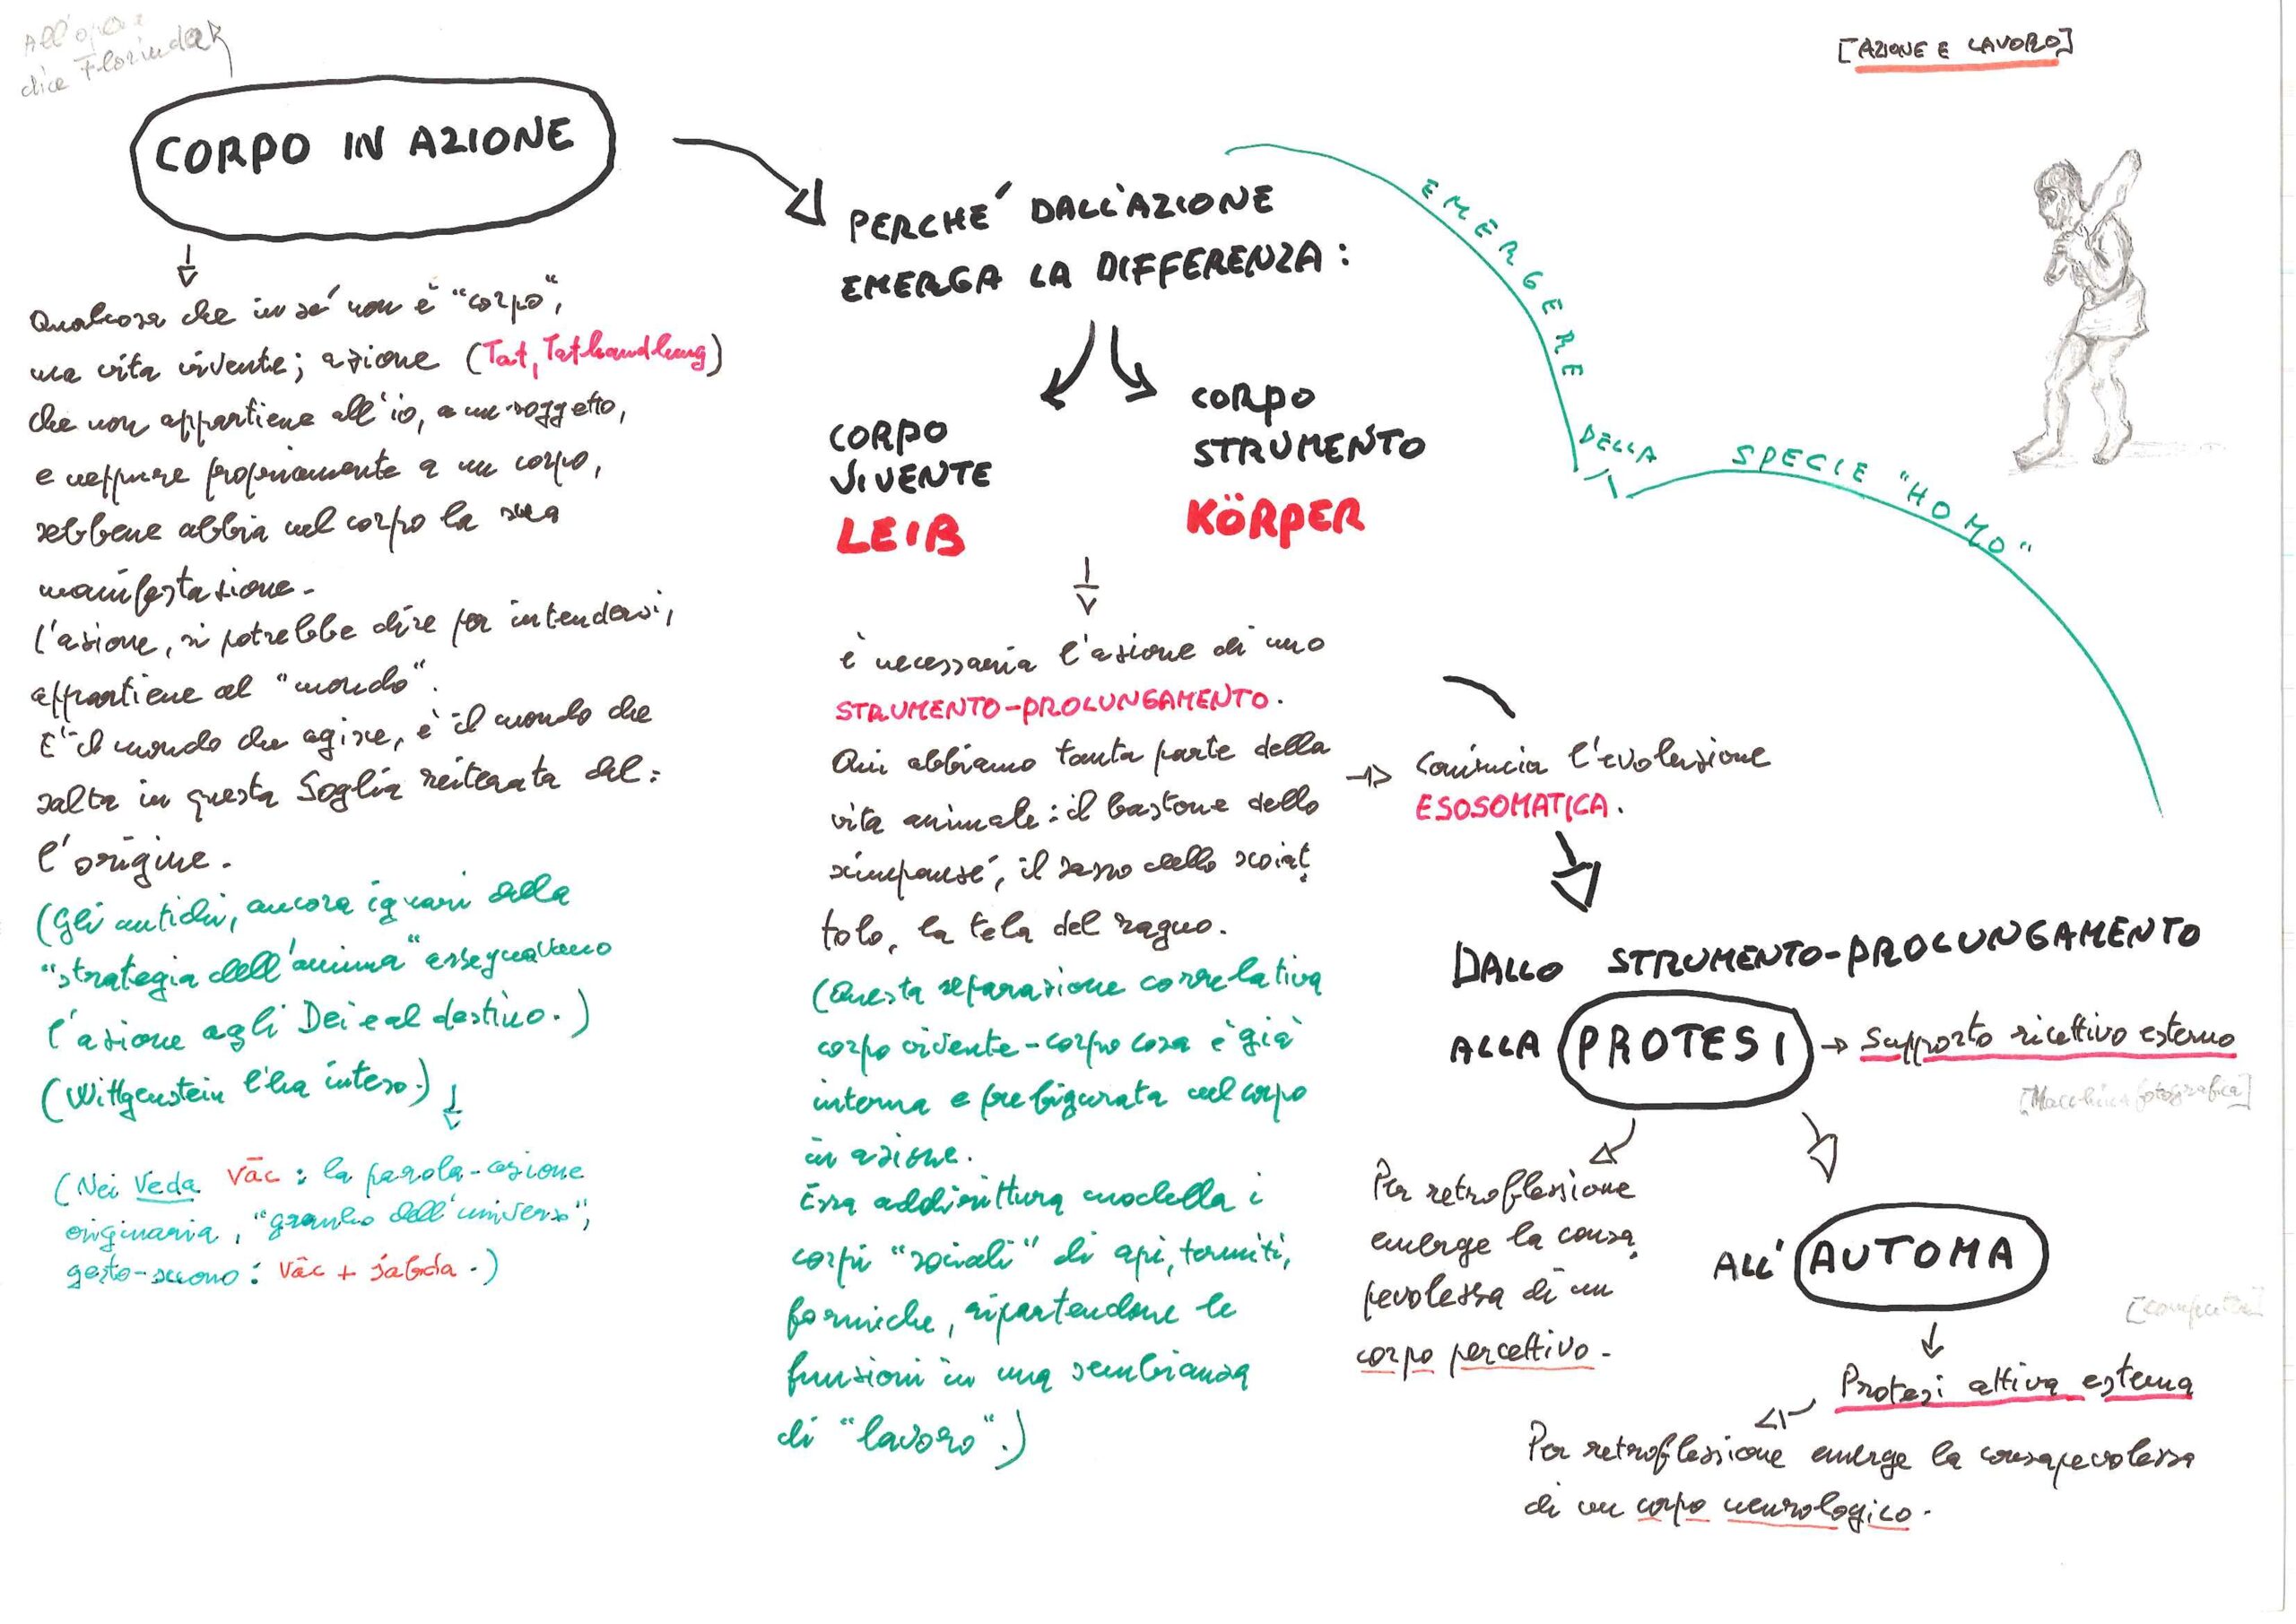 All'opera
dice Florinda
[AZIONE E LAVORO]
CORPO IN AZIONE
Qualcosa che in sé non è "corpo",
ma vita vivente; azione (Tat, Tathandlung)
che non appartiene all'io, a un soggetto,
e neppure propriamente a un corpo,
sebbene abbia nel corpo la sua
manifestazione.
L'azione, si potrebbe dire per intendersi,
appartiene al "mondo".
E' il mondo che agisce, è il mondo che
salta in questa Soglia reiterata del=
l'origine.
(Gli antichi, ancora ignari della
"strategia dell'anima" assegnavano
l'azione agli Dei e al destino.)
(Wittgenstein l'ha inteso.)
(Nei Veda Vāc: la parola-azione
originaria, "grembo dell'universo",
gesto-suono: Vāc + śabda.)
PERCHE' DALL'AZIONE
EMERGA LA DIFFERENZA:
CORPO
VIVENTE
LEIB
CORPO
STRUMENTO
KÖRPER
è necessaria l'azione di uno
STRUMENTO-PROLUNGAMENTO.
Qui abbiamo tanta parte della
vita animale: il bastone dello
scimpansé, il sasso dello scoiat
tolo, la tela del ragno.
(Questa separazione correlativa
corpo vivente-corpo cosa è già
interna e prefigurata nel corpo
in azione.
Essa addirittura modella i
corpi "sociali" di api, termiti,
formiche, ripartendone le
funzioni in una sembianza
di "lavoro".)
EMERGERE
DELLA
SPECIE "HOMO"
Comincia l'evoluzione
ESOSOMATICA.
DALLO STRUMENTO-PROLUNGAMENTO
ALLA PROTESI → Supporto ricettivo esterno
[Macchina fotografica]
Per retroflessione
emerge la consa
pevolezza di un
corpo percettivo.
ALL' AUTOMA
[computer]
Protesi attiva esterna
Per retroflessione emerge la consapevolezza
di un corpo neurologico.